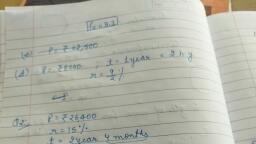 (a) P = ₹ 62,500
(d) P = ₹ 8000 t = 1 year = 2 h y
r = 9/2 %
Q2. P = ₹ 26400
r = 15 %
t = 2 year 4 months